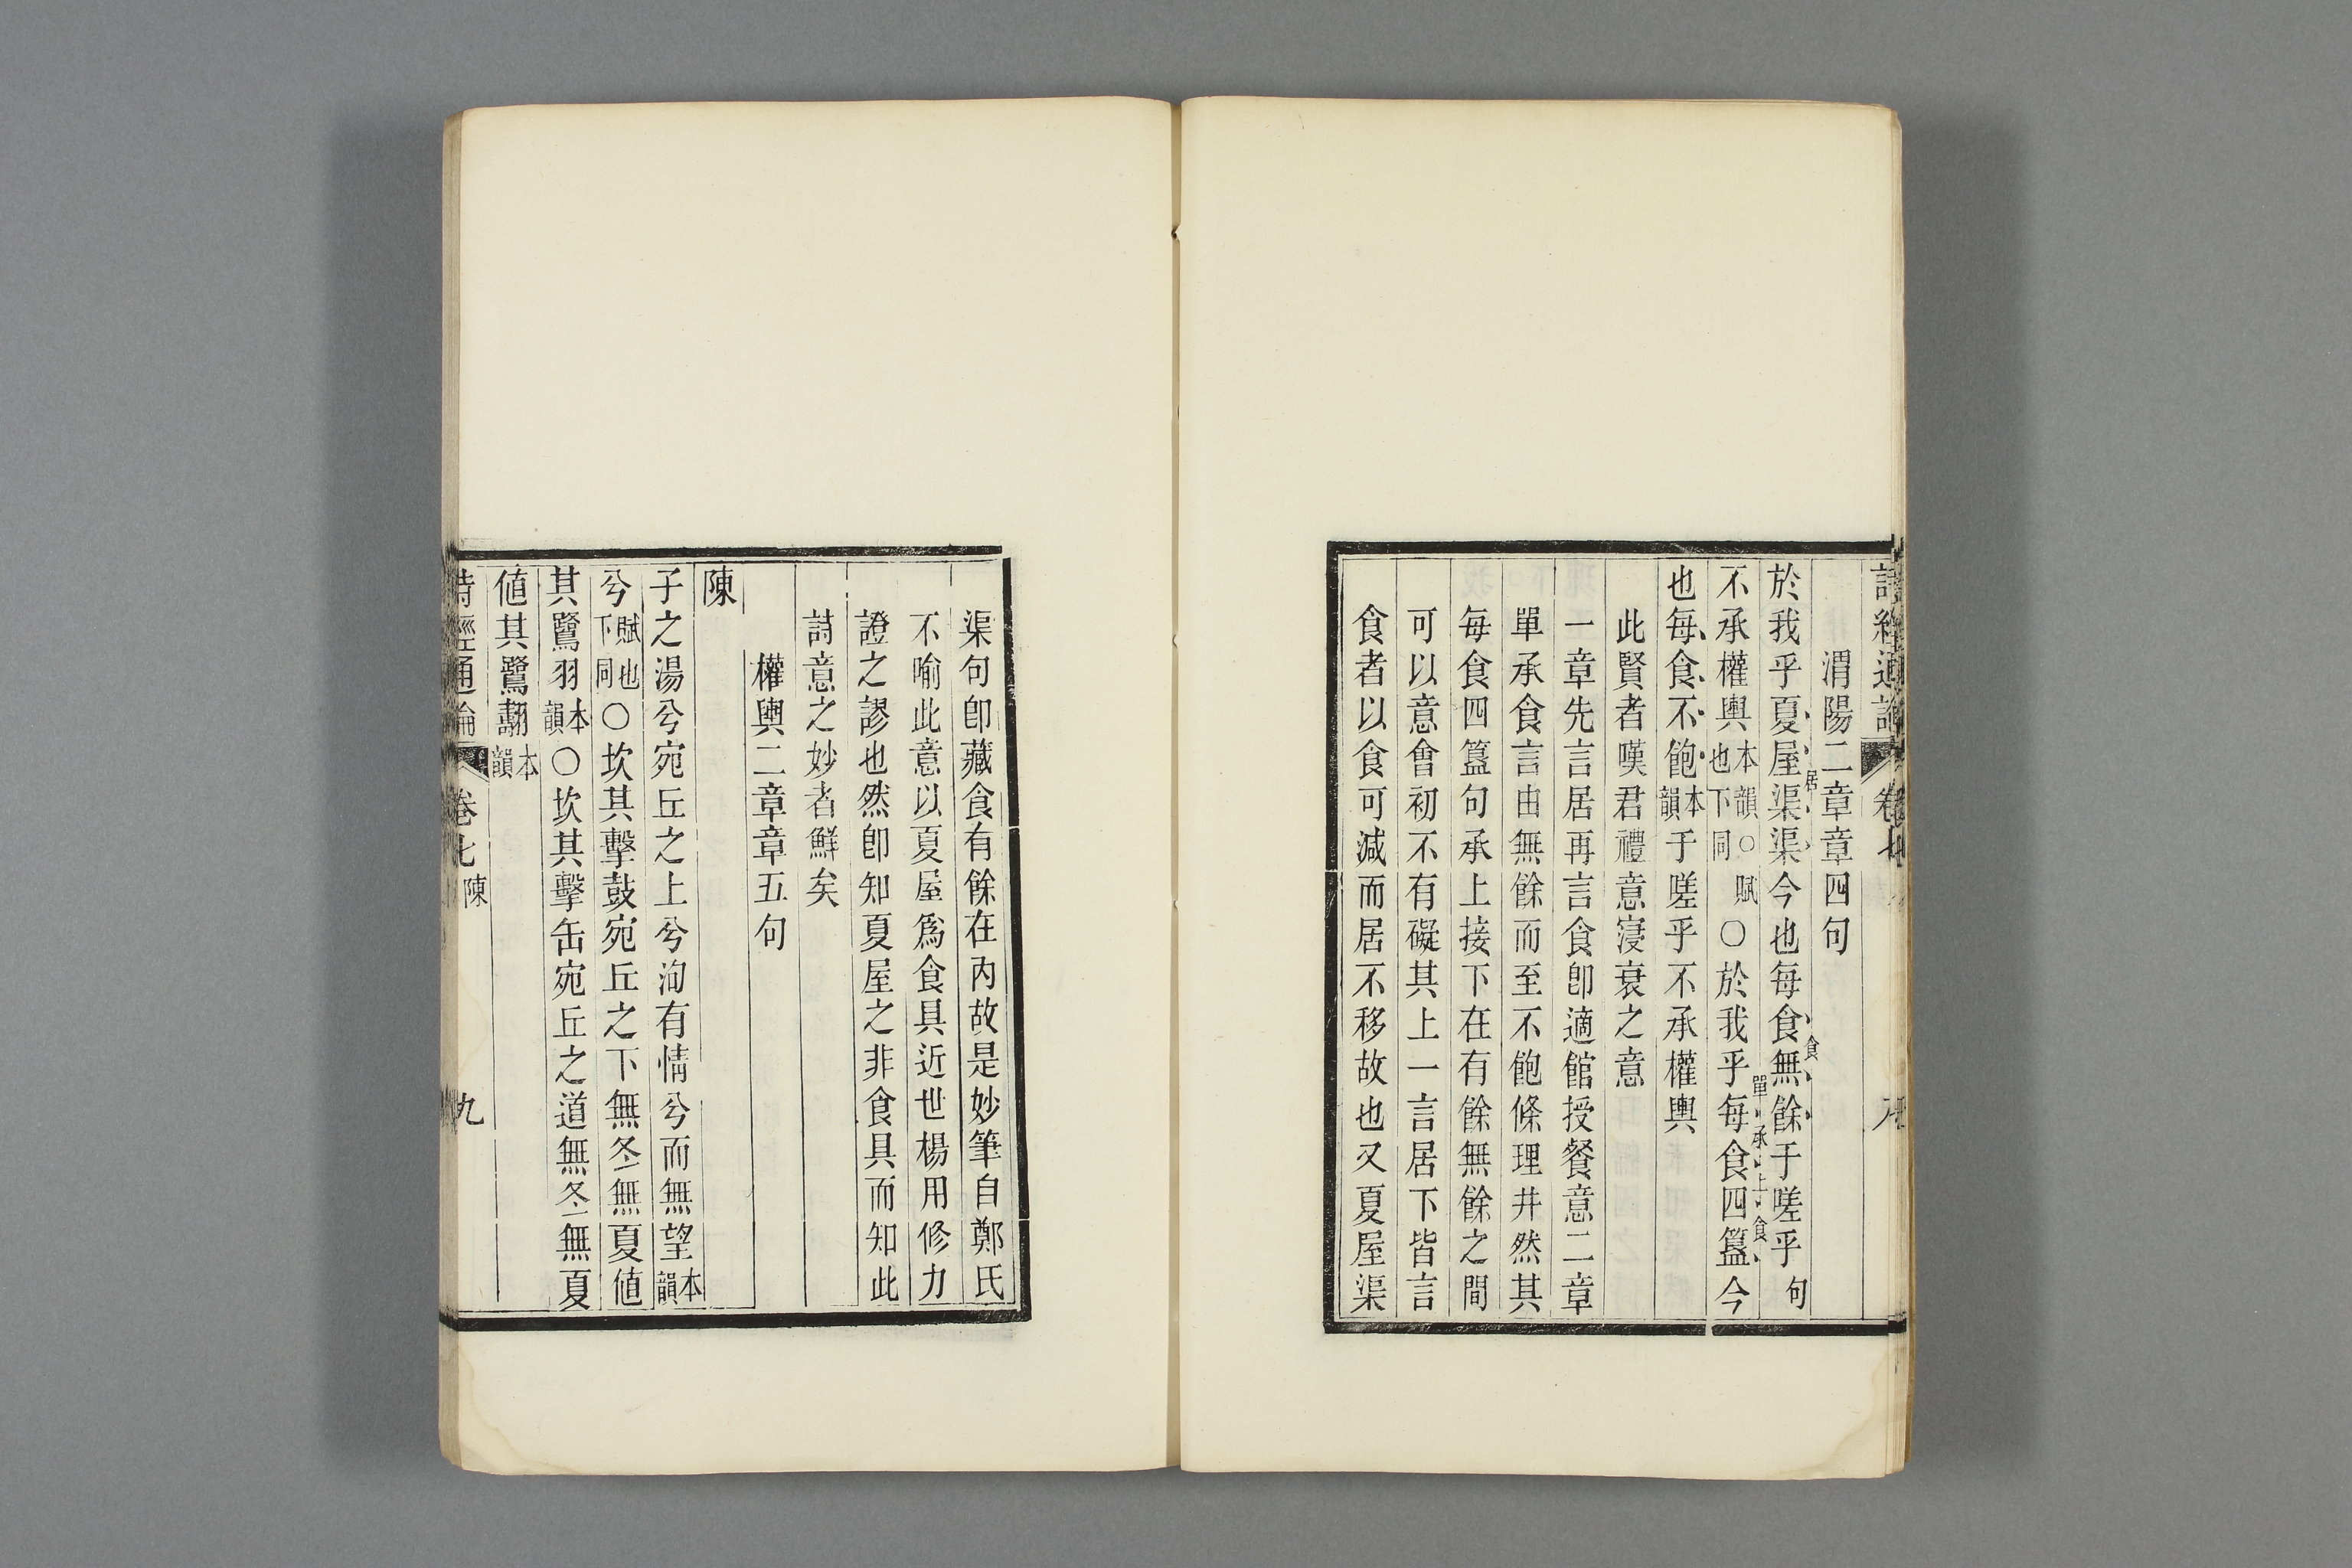 詩經通論 卷七
渭陽二章章四句
於我乎夏屋渠渠居今也每食無餘食于嗟乎句
不承權輿本韻○賦也下同○於我乎每食四簋單承上食今
也每食不飽本韻于嗟乎不承權輿
此賢者嘆君禮意寖衰之意
一章先言居再言食卽適館授餐意二章
單承食言由無餘而至不飽條理井然其
每食四簋句承上接下在有餘無餘之間
可以意會初不有礙其上一言居下皆言
食者以食可減而居不移故也又夏屋渠
渠句卽藏食有餘在內故是妙筆自鄭氏
不喻此意以夏屋爲食具近世楊用修力
證之謬也然卽知夏屋之非食具而知此
詩意之妙者鮮矣
權輿二章章五句
陳
子之湯兮宛丘之上兮洵有情兮而無望本韻
兮賦也下同○坎其擊鼓宛丘之下無冬無夏値
其鷺羽本韻○坎其擊缶宛丘之道無冬無夏
値其鷺翿本韻
詩經通論 卷七 陳 九